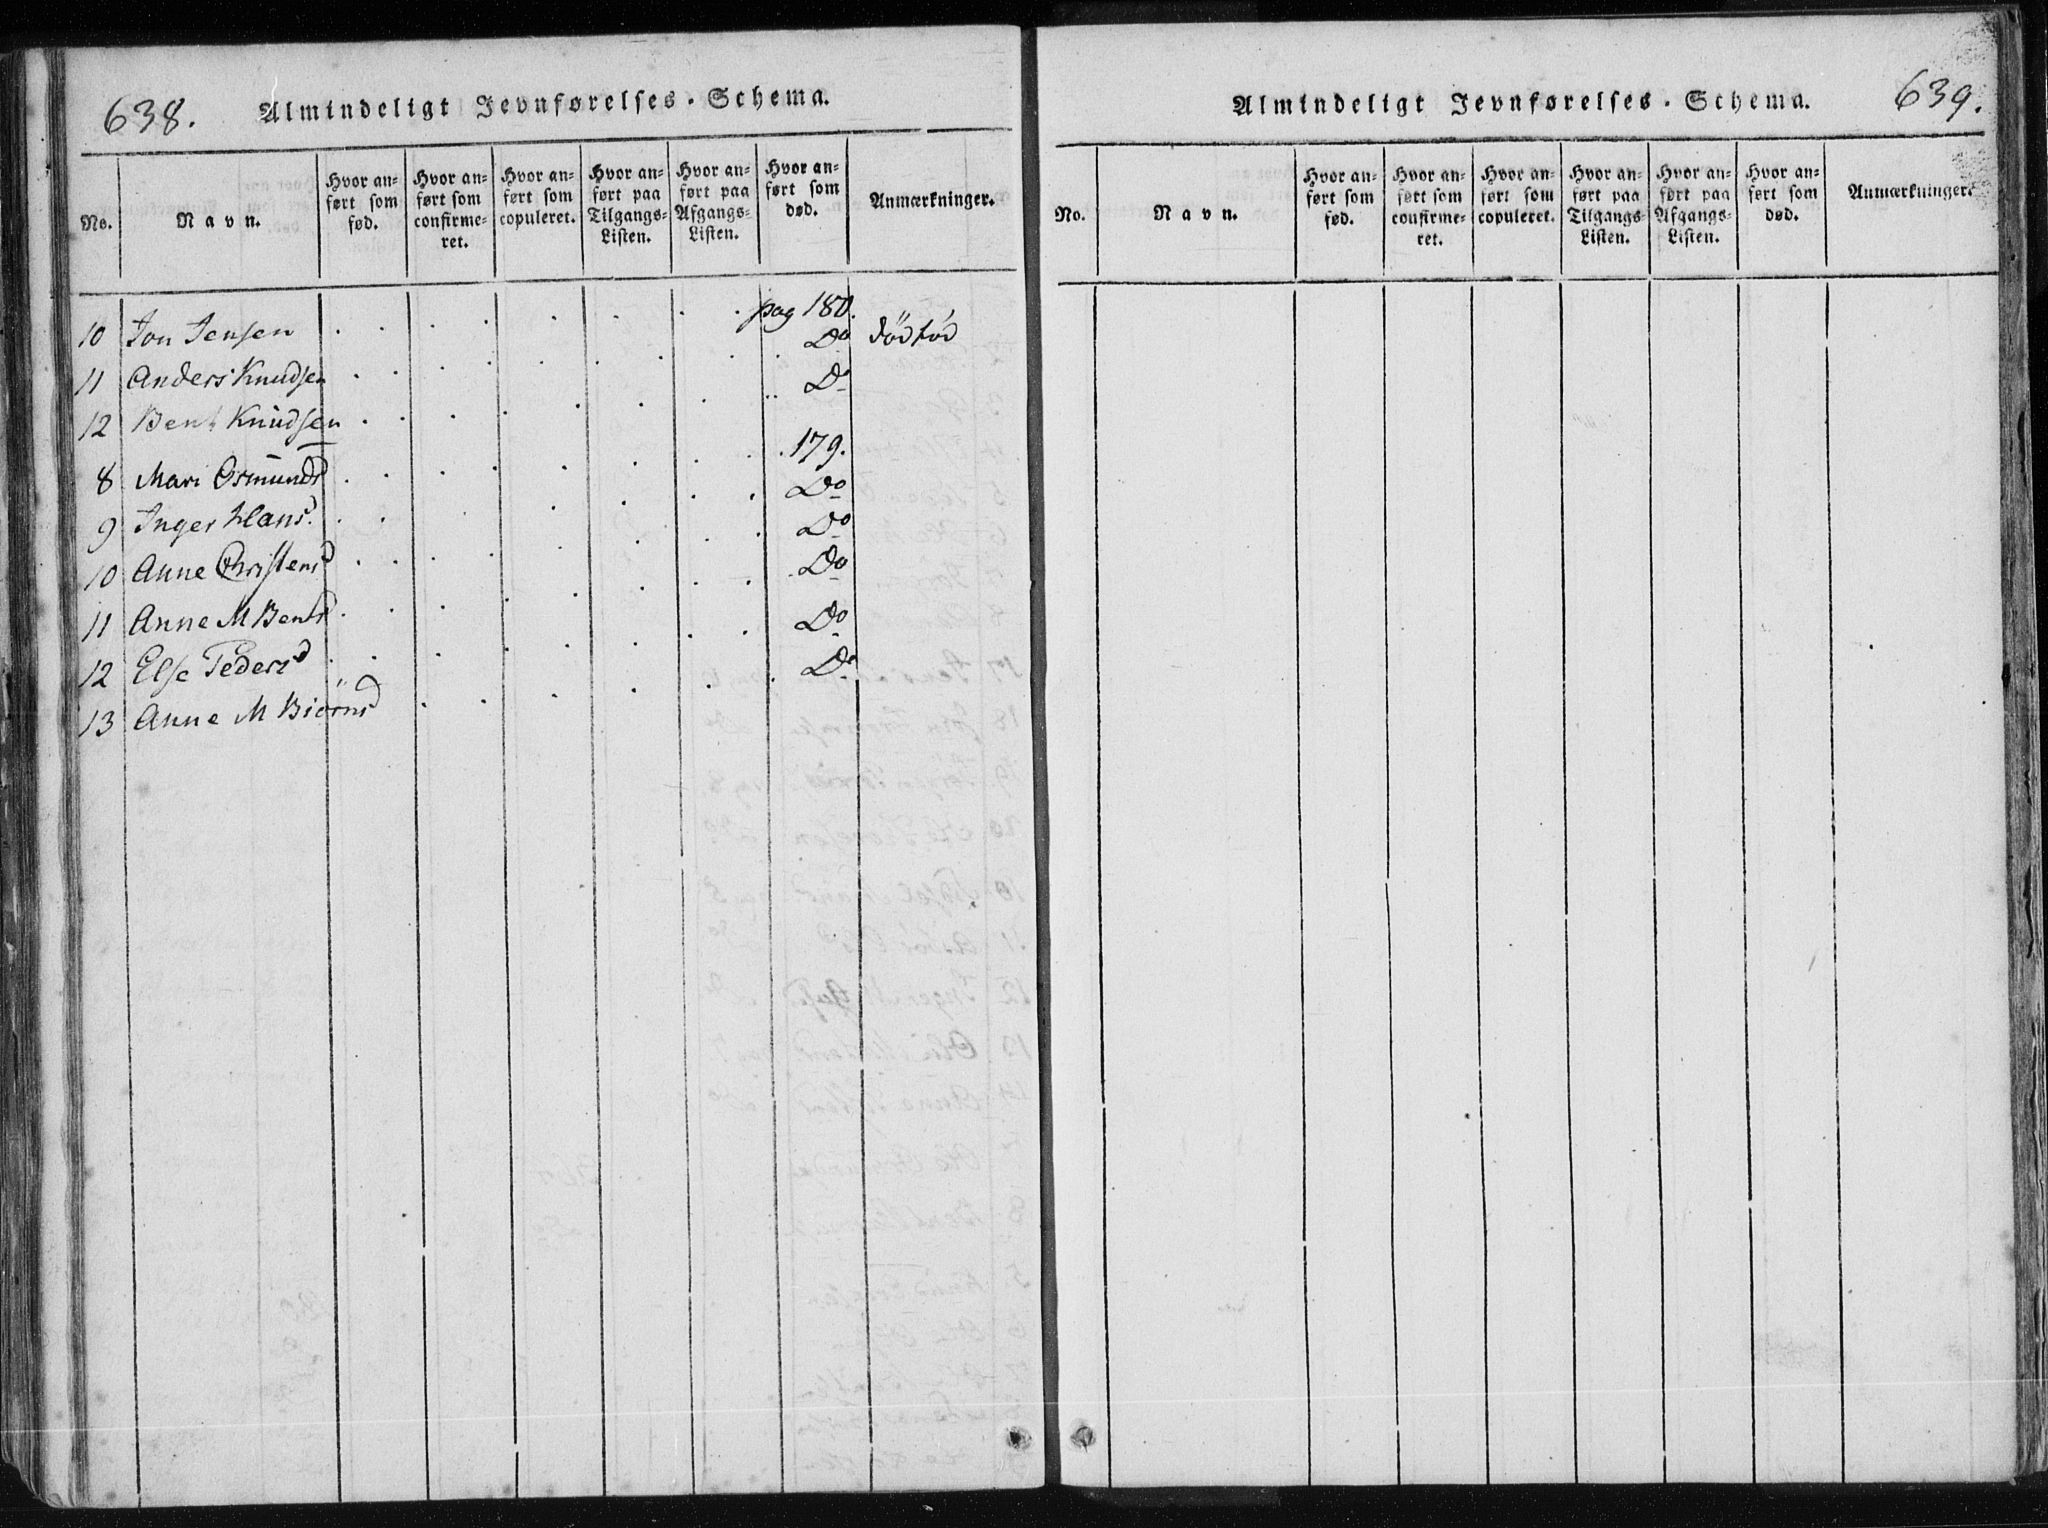 638. Almindeligt Jevnførelses-Schema.
No. Navn. Hvor anført som fød. Hvor anført som confirmeret. Hvor anført som copuleret. Hvor anført paa Tilgangs-Listen. Hvor anført paa Afgangs-Listen. Hvor anført som død. Anmærkninger.
10 Jon Jensen . . . . . . . . pag 180.
11 Anders Knudsen . . . . . . . . Do dödfód
12 Bent Knudsen . . . . . . . Do
8 Mari Osmundsd . . . . . . . . 179.
9 Inger Hansd. . . . . . Do
10 Anne Christensd . . . . . . . Do
11 Anne M Bentsd . . . . . . . . Do
12 Else Pedersd . . . . . . . Do
13 Anne M Biörnsd . . . . . . Do
Almindeligt Jevnførelses-Schema. 639.
No. Navn. Hvor anført som fød. Hvor anført som confirmeret. Hvor anført som copuleret. Hvor anført paa Tilgangs-Listen. Hvor anført paa Afgangs-Listen. Hvor anført som død. Anmærkninger.